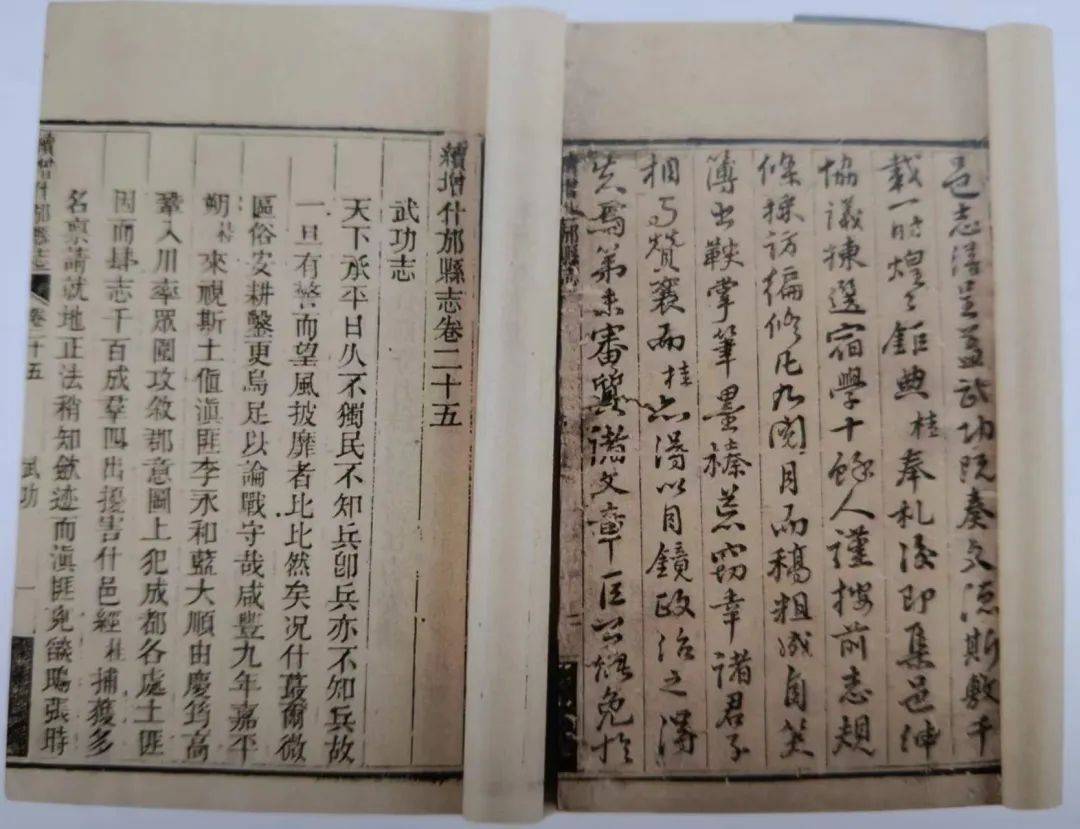 邑志呈武功既奏文德斯敷千
載一時煌〻鉅典桂奉札後即集邑紳
協議揀選宿學十餘人謹按前志規
條採訪編修凡九閱月而稿粗成自笑
簿出鞅掌筆墨榛荒竊幸諸君子
相與贊襄而桂亦得以目鏡政治之得
失焉第未審質諸文章巨公能免於
續增什邡縣志
二
續增什邡縣志卷二十五
武功志
天下承平日久不獨民不知兵卽兵亦不知兵故
一旦有警而望風披靡者比比然矣况什蕞爾微
區俗安耕鑿更烏足以論戰守哉咸豐九年嘉平
朔桂來視斯土值滇匪李永和藍大順由慶筠高
鞏入川率眾圍攻敘郡意圖上犯成都各處土匪
因而肆志千百成羣四出擾害什邑經桂捕獲多
名稟請就地正法稍知歛迹而滇匪兇燄鴟張時
續增什邡縣志 卷二十五 武功 一